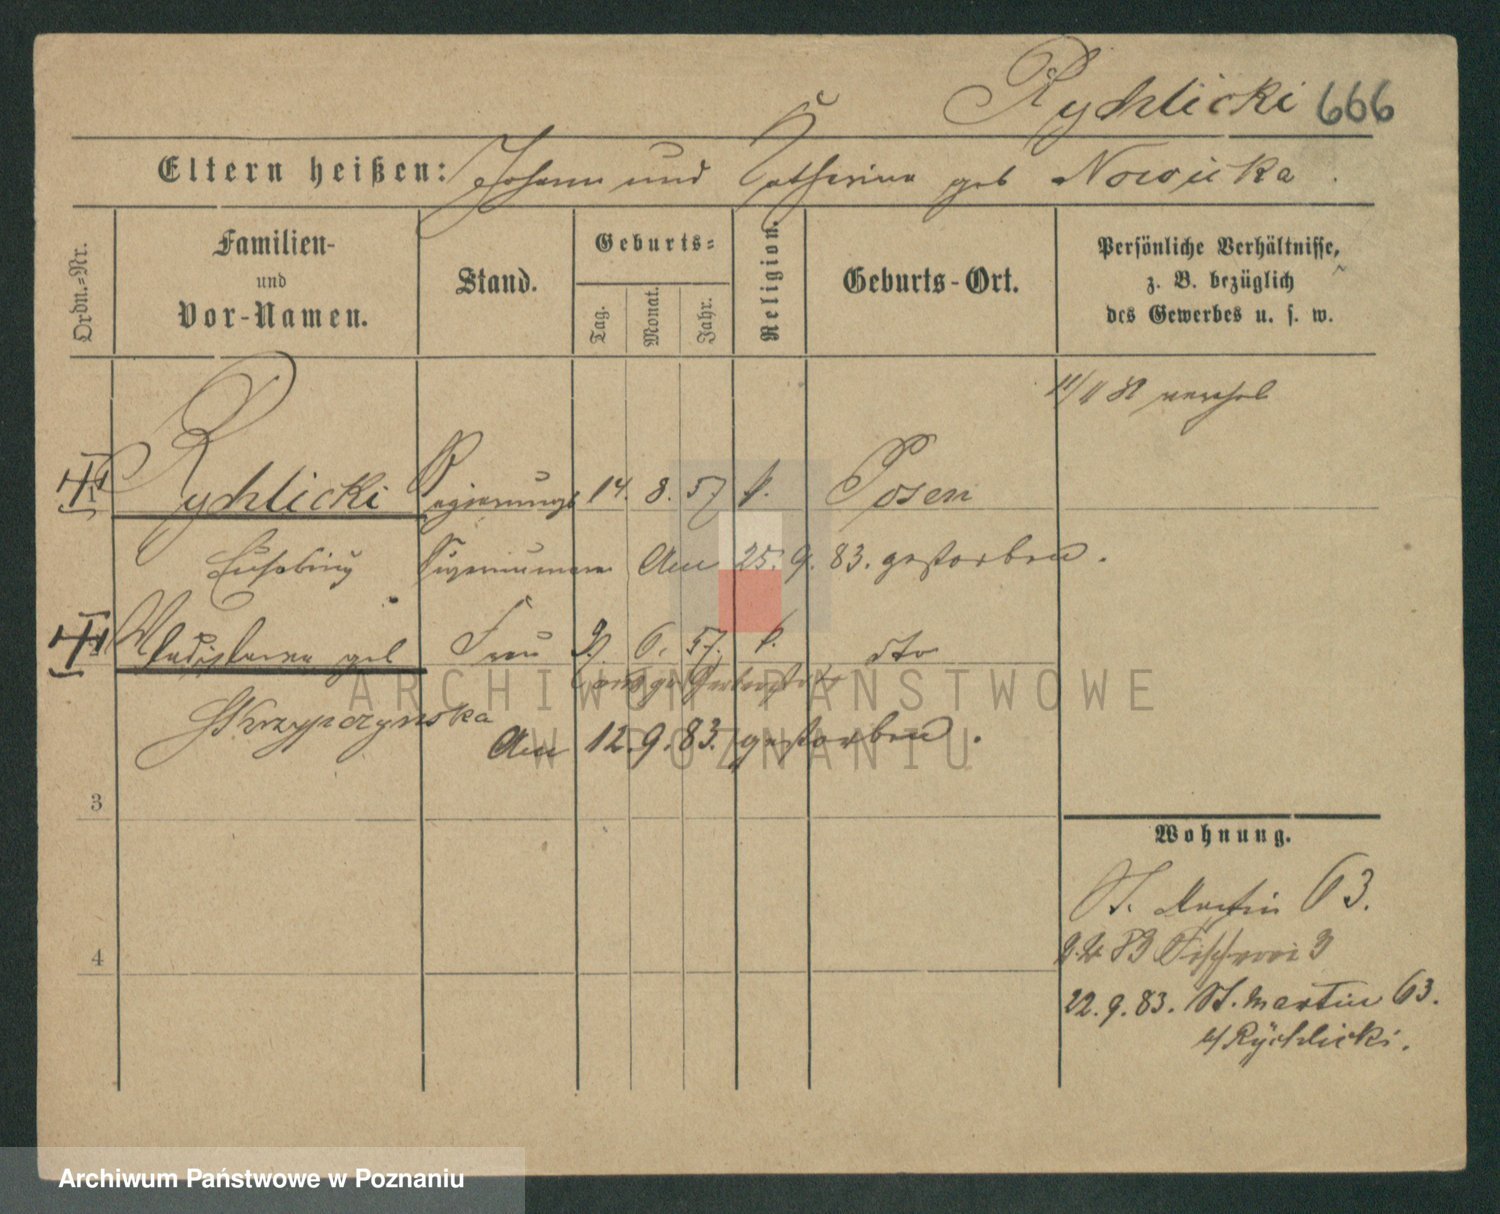 Rychlicki 666
Eltern heißen: Johann und Catharina geb Nowicka.
Ordn.=Nr.
Familien- und Vor-Namen.
Stand.
Geburts=
Tag.
Monat.
Jahr.
Religion.
Geburts-Ort.
Persönliche Verhältnisse, z. B. bezüglich des Gewerbes u. s. w.
Rychlicki Regierungs 14. 8. 57 k. Posen
Am 25. 9. 83. gestorben.
Wladislawa geb Frau 9. 6. 57. k. dto
Skrzypczynska
Am 12. 9. 83. gestorben.
3
4
Wohnung.
St. Martin 63.
83 Fischerei 3
22. 9. 83. St. Martin 63.
b/ Rychlicki.
ARCHIWUM PAŃSTWOWE
W POZNANIU
Archiwum Państwowe w Poznaniu